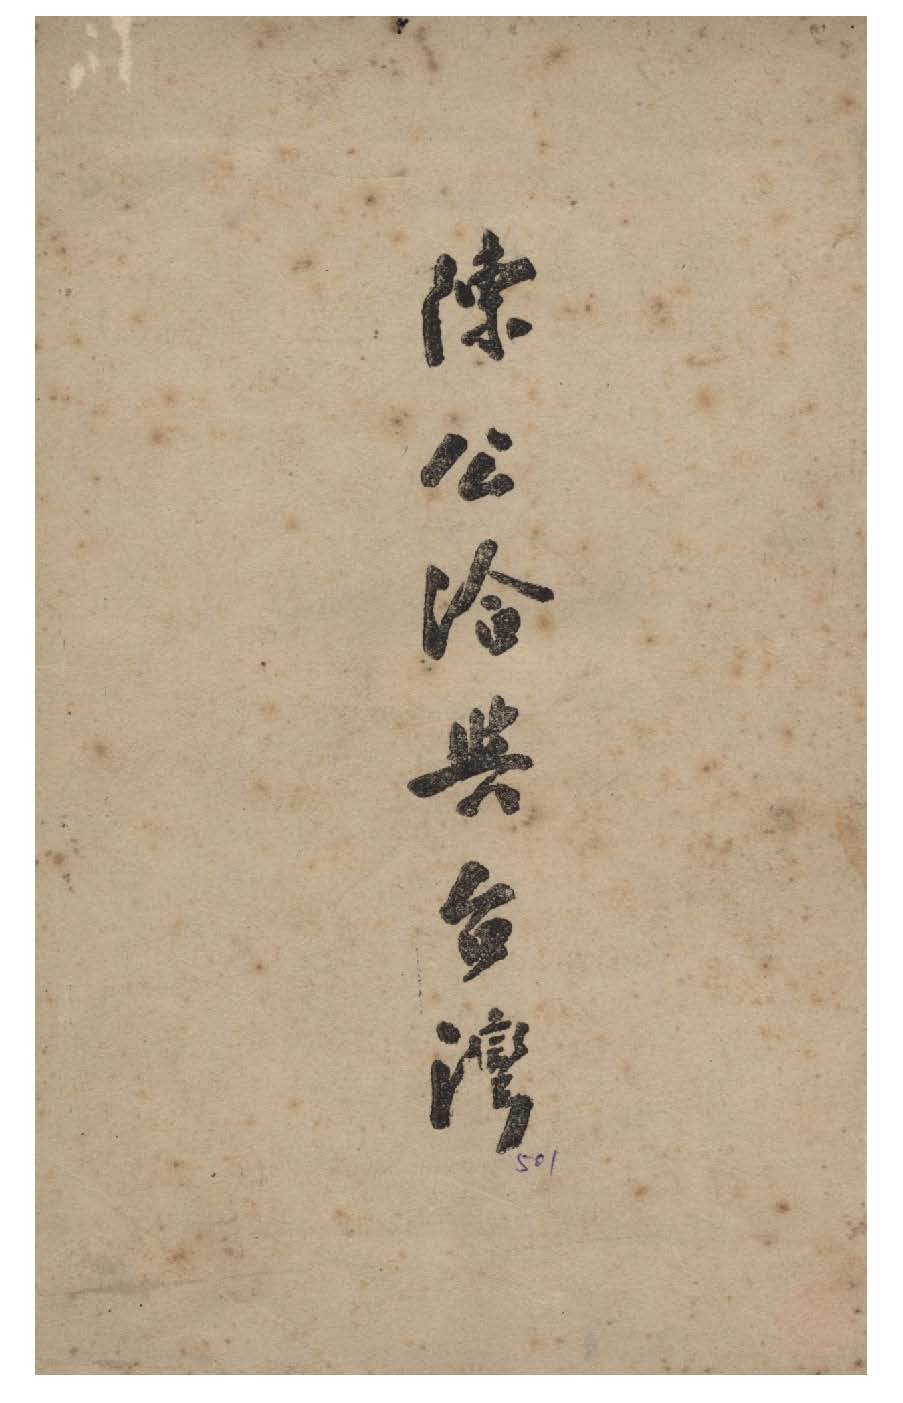 陳公洽與台灣
501